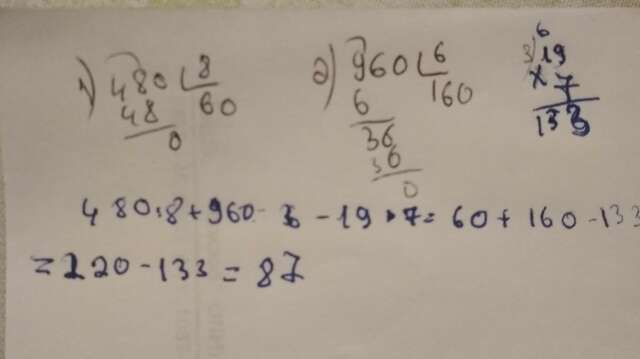 1) 480 8
48 60
0
2) 960 6
6 160
36
36
0
3) 6
19
× 7
133
480:8+960: 6 -19•7= 60+ 160-133
= 220-133 = 87